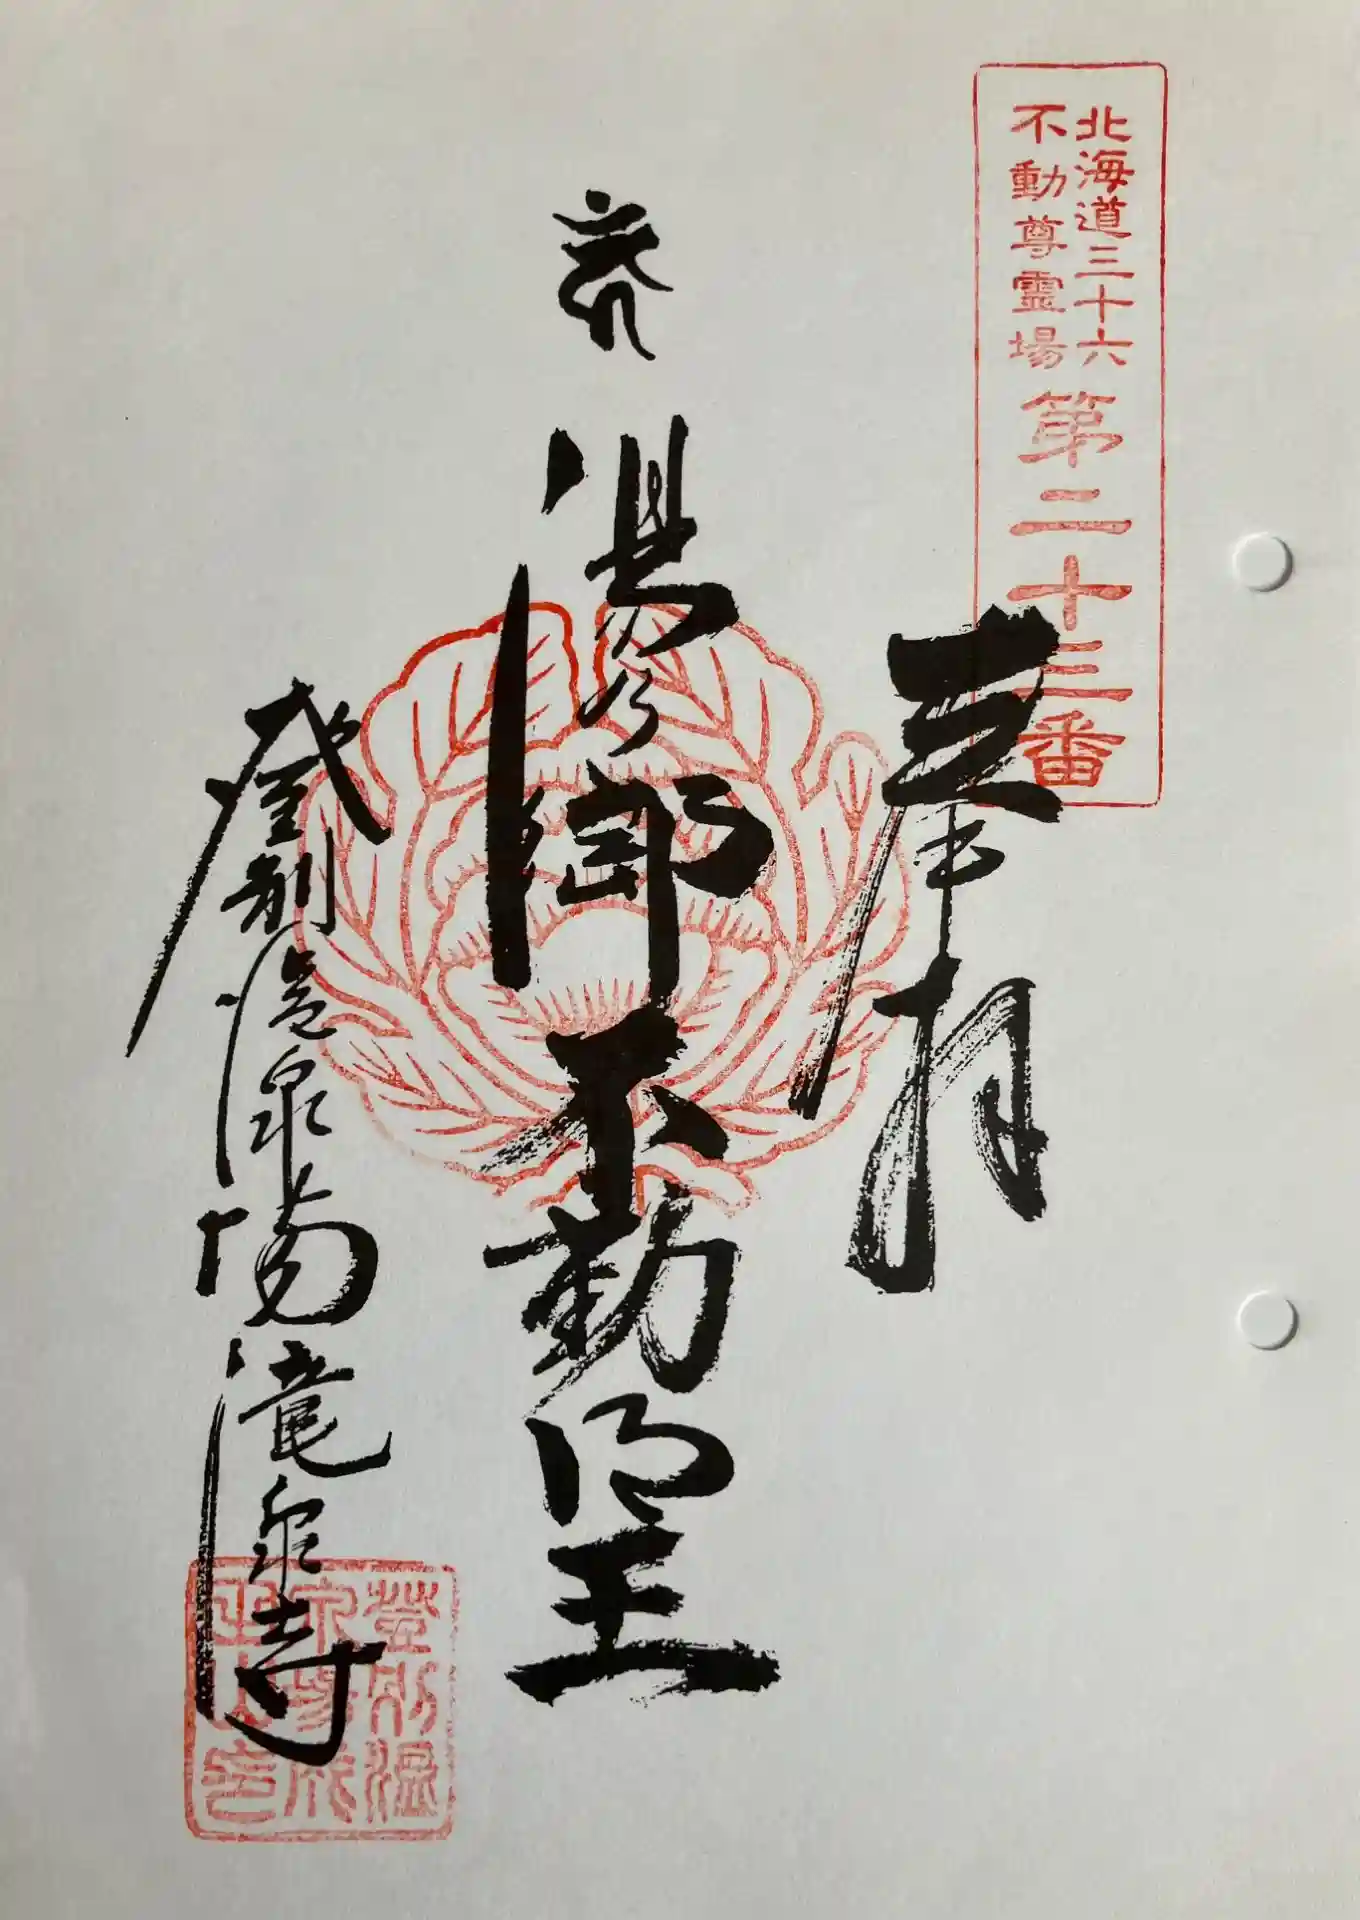 北海道三十六
不動尊霊場
第二十三番
奉拝
湯乃御不動明王
登別温泉湯滝泉寺